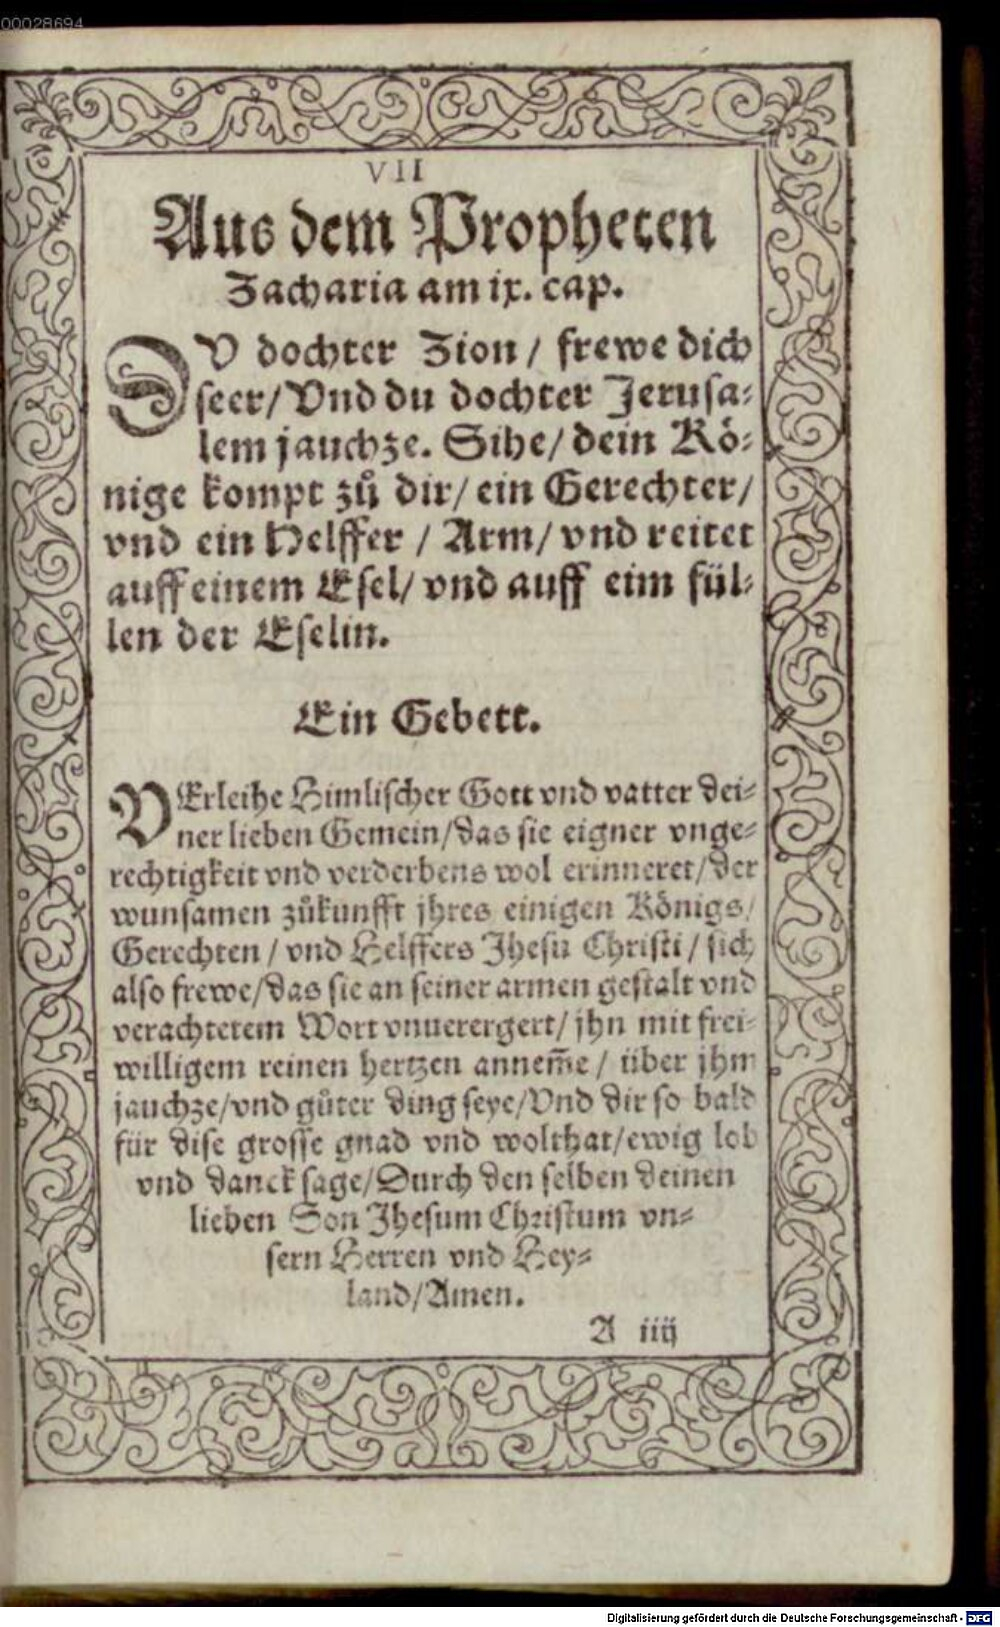 00028694
VII
Aus dem Propheten
Zacharia am ix. cap.
DV dochter Zion / frewe dich
seer / Vnd du dochter Jerusa-
lem jauchze. Sihe / dein Kö-
nige kompt zů dir / ein Gerechter /
vnd ein Helffer / Arm / vnd reitet
auff einem Esel / vnd auff eim fül-
len der Eselin.
Ein Gebett.
VErleihe Himlischer Gott vnd vatter dei-
ner lieben Gemein / das sie eigner vnge-
rechtigkeit vnd verderbens wol erinneret / der
wunsamen zůkunfft jhres einigen Königs /
Gerechten / vnd Helffers Jhesu Christi / sich
also frewe / das sie an seiner armen gestalt vnd
verachtetem Wort vnuerergert / jhn mit frei-
willigem reinen hertzen annem̃e / über jhm
jauchze / vnd gůter ding seye / Vnd dir so bald
für dise grosse gnad vnd wolthat / ewig lob
vnd danck sage / Durch den selben deinen
lieben Son Jhesum Christum vn-
sern Herren vnd Hey-
land / Amen.
A iiij
Digitalisierung gefördert durch die Deutsche Forschungsgemeinschaft - DFG